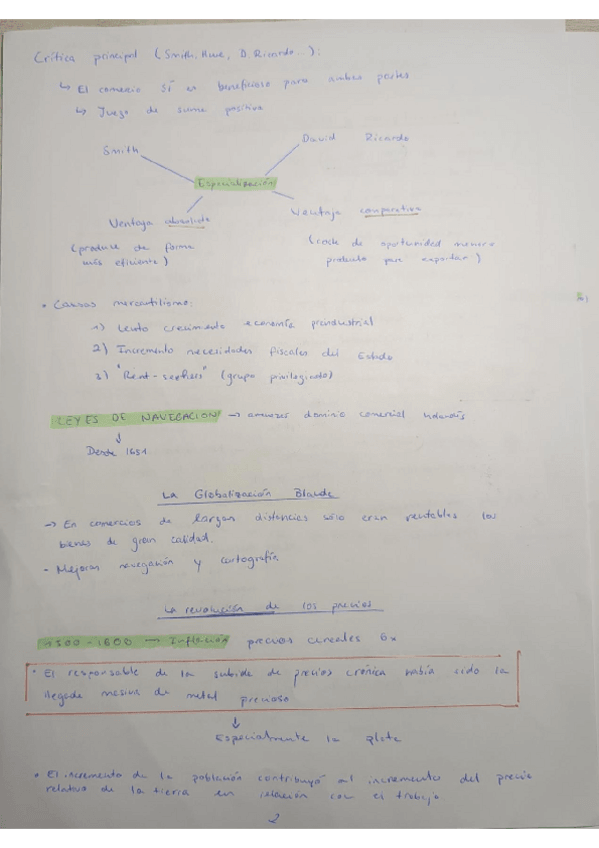 Crítica principal (Smith, Hume, D. Ricardo...):
↳ El comercio sí es beneficioso para ambas partes
↳ Juego de suma positiva
Smith
David Ricardo
Especialización
Ventaja absoluta
(produce de forma
más eficiente)
Ventaja comparativa
(coste de oportunidad menor
producto para exportar)
• Causas mercantilismo:
1) Lento crecimiento economía preindustrial
2) Incremento necesidades fiscales del Estado
3) "Rent-seekers" (grupo privilegiado)
LEYES DE NAVEGACION → dominio comercial holandés
↓
Desde 1651
La Globalización Blanda
→ En comercios de largas distancias sólo eran rentables los
bienes de gran calidad.
- Mejoras navegación y cartografía
La revolución de los precios
1500-1600 → Inflación precios cereales 6x
• El responsable de la subida de precios crónica había sido la
llegada masiva de metal precioso
↓
Especialmente la plata
• El incremento de la población contribuyó al incremento del precio
relativo de la tierra en relación con el trabajo
2